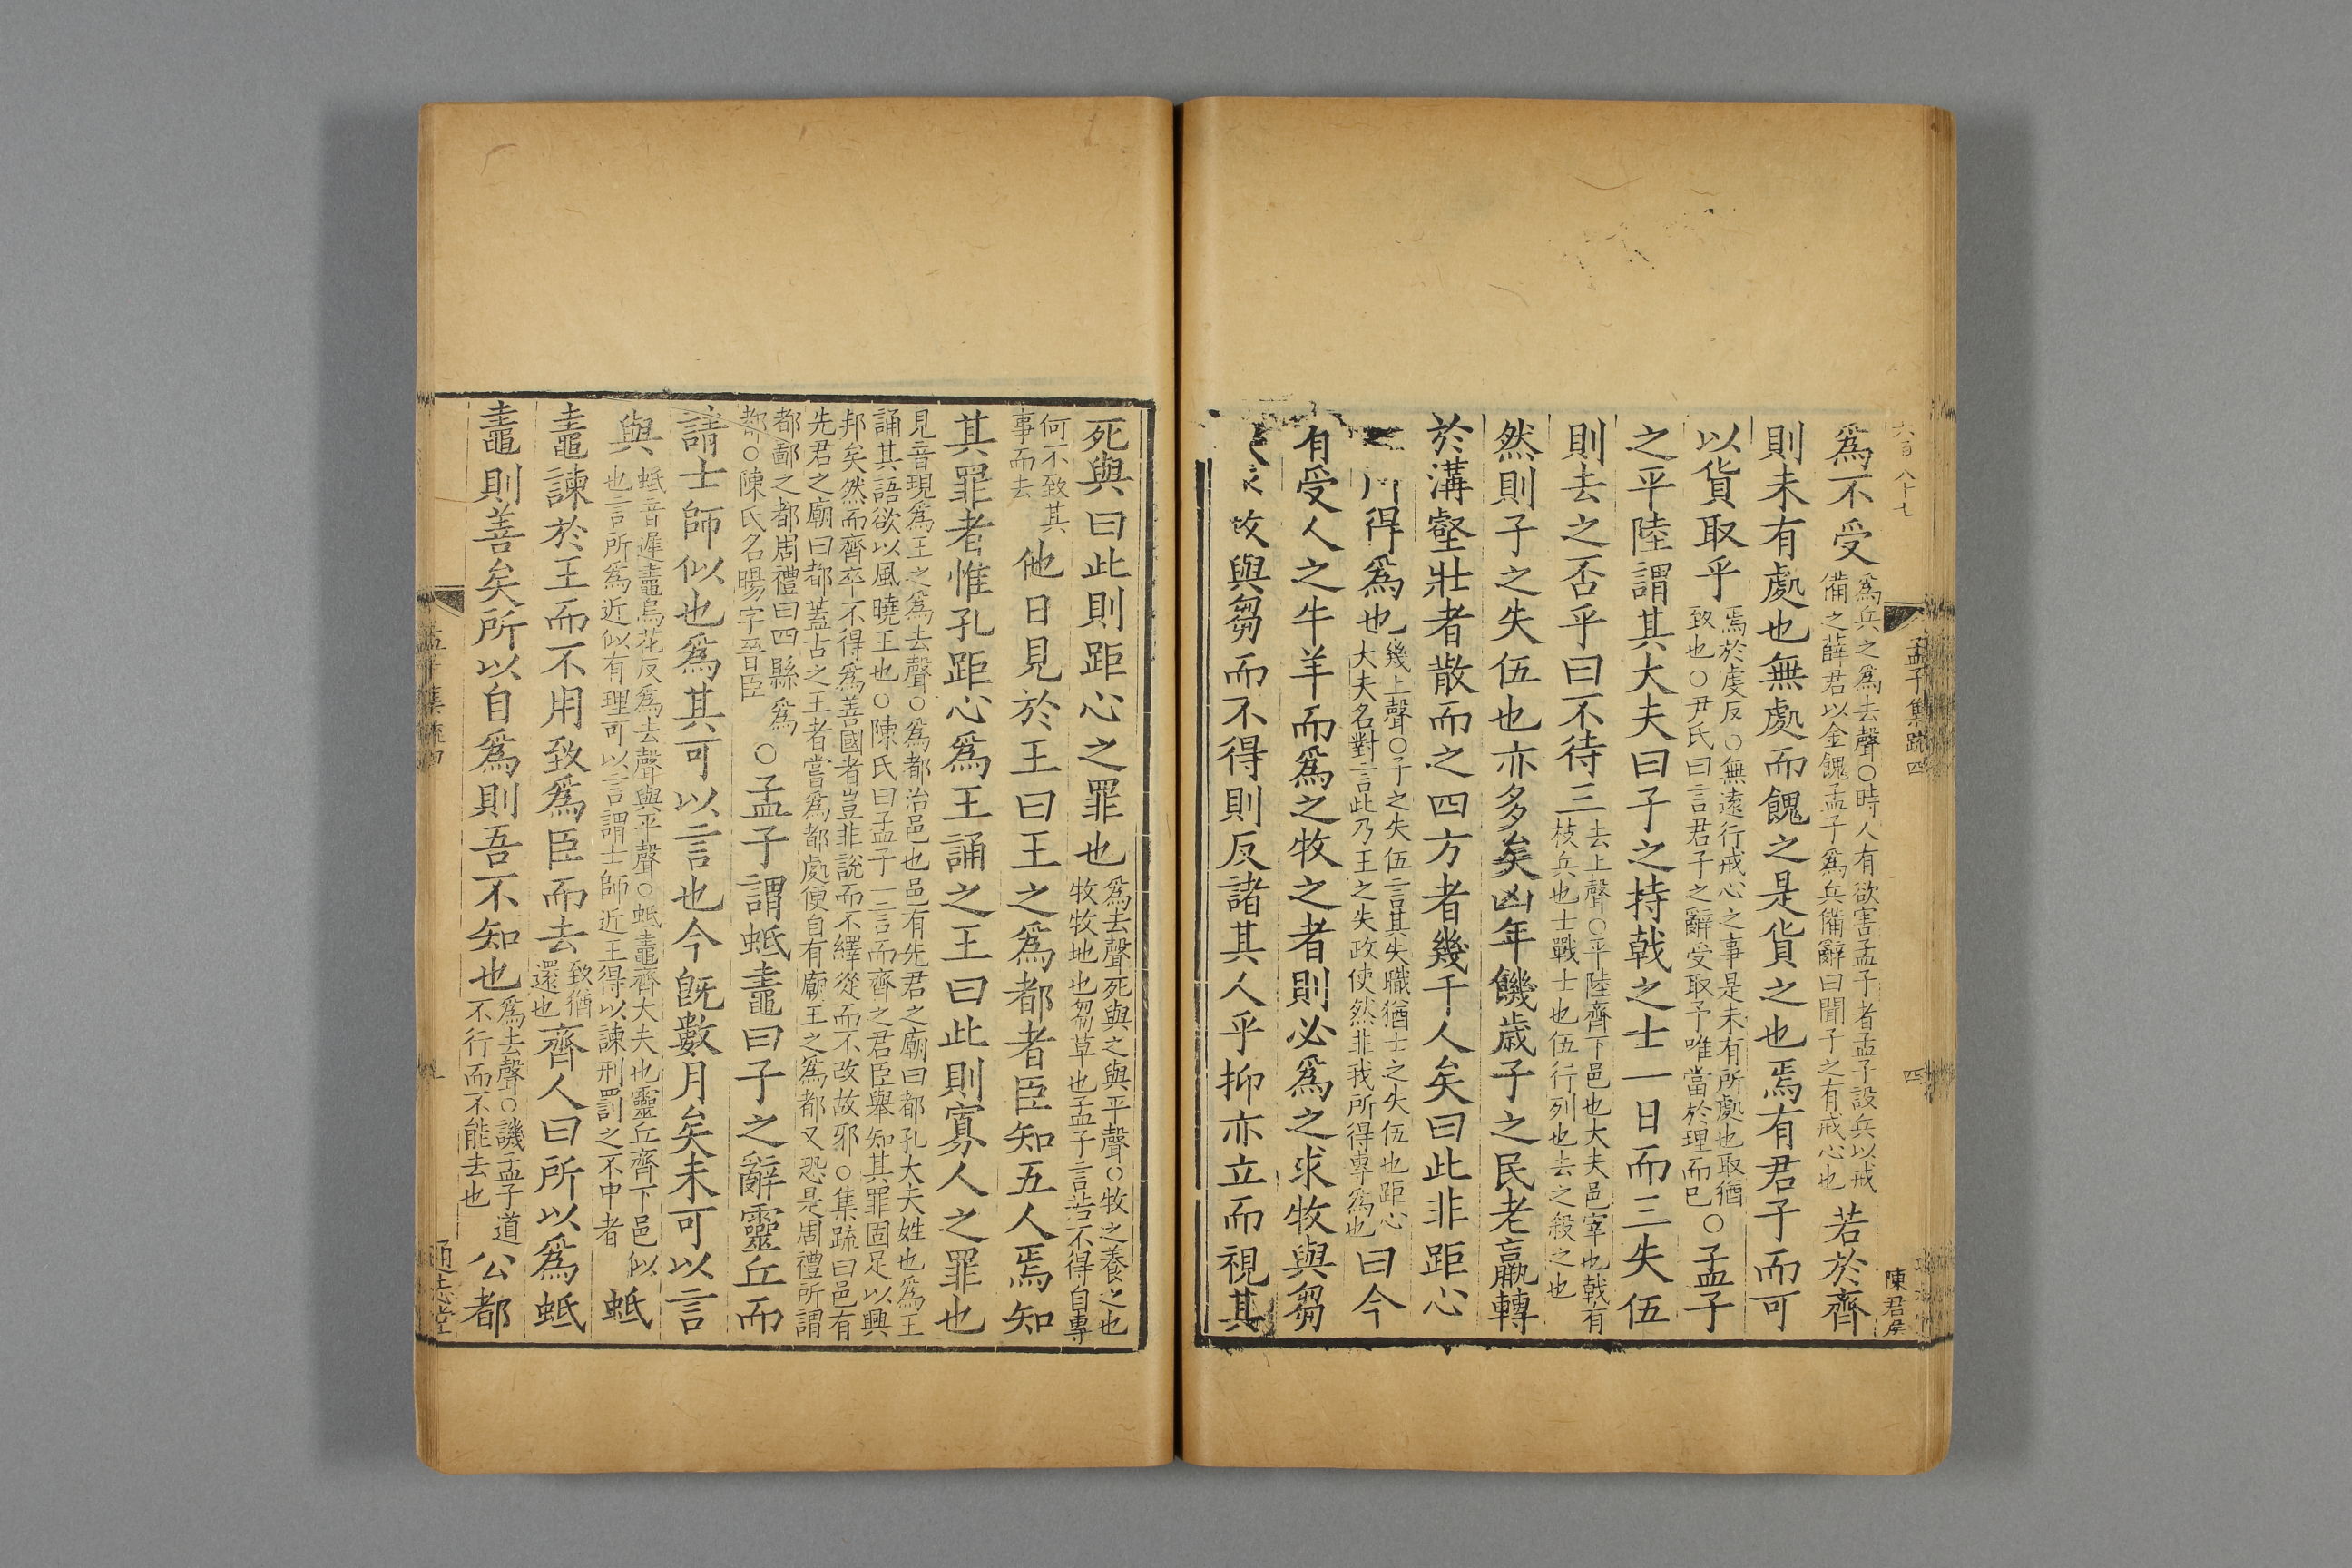 六百八十七
孟子集疏四
四
陳君侯
爲不受爲兵之爲去聲○時人有欲害孟子者孟子設兵以戒備之薛君以金餽孟子爲兵備辭曰聞子之有戒心也若於齊
則未有處也無處而餽之是貨之也焉有君子而可
以貨取乎焉於虔反○無遠行戒心之事是未有所處也取猶致也○尹氏曰言君子之辭受取予唯當於理而已○孟子
之平陸謂其大夫曰子之持戟之士一日而三失伍
則去之否乎曰不待三去上聲○平陸齊下邑也大夫邑宰也戟有枝兵也士戰士也伍行列也去之殺之也
然則子之失伍也亦多矣凶年饑歲子之民老羸轉
於溝壑壯者散而之四方者幾千人矣曰此非距心
之所得爲也幾上聲○子之失伍言其失職猶士之失伍也距心大夫名對言此乃王之失政使然非我所得專爲也曰今
有受人之牛羊而爲之牧之者則必爲之求牧與芻
矣求牧與芻而不得則反諸其人乎抑亦立而視其
死與曰此則距心之罪也爲去聲死與之與平聲○牧之養之也牧牧地也芻草也孟子言若不得自專
何不致其事而去他日見於王曰王之爲都者臣知五人焉知
其罪者惟孔距心爲王誦之王曰此則寡人之罪也
見音現爲王之爲去聲○爲都治邑也邑有先君之廟曰都孔大夫姓也爲王誦其語欲以風曉王也○陳氏曰孟子一言而齊之君臣舉知其罪固足以興
邦矣然而齊卒不得爲善國者豈非說而不繹從而不改故邪○集疏曰邑有先君之廟曰都蓋古之王者嘗爲都處便自有廟王之爲都又恐是周禮所謂
都鄙之都周禮曰四縣爲都○陳氏名暘字晉臣○孟子謂蚳鼃曰子之辭靈丘而
請士師似也爲其可以言也今旣數月矣未可以言
與蚳音遲鼃烏花反爲去聲與平聲○蚳鼃齊大夫也靈丘齊下邑似也言所爲近似有理可以言謂士師近王得以諫刑罰之不中者蚳
鼃諫於王而不用致爲臣而去致猶還也齊人曰所以爲蚳
鼃則善矣所以自爲則吾不知也爲去聲○譏孟子道不行而不能去也公都
孟子集疏四
通志堂